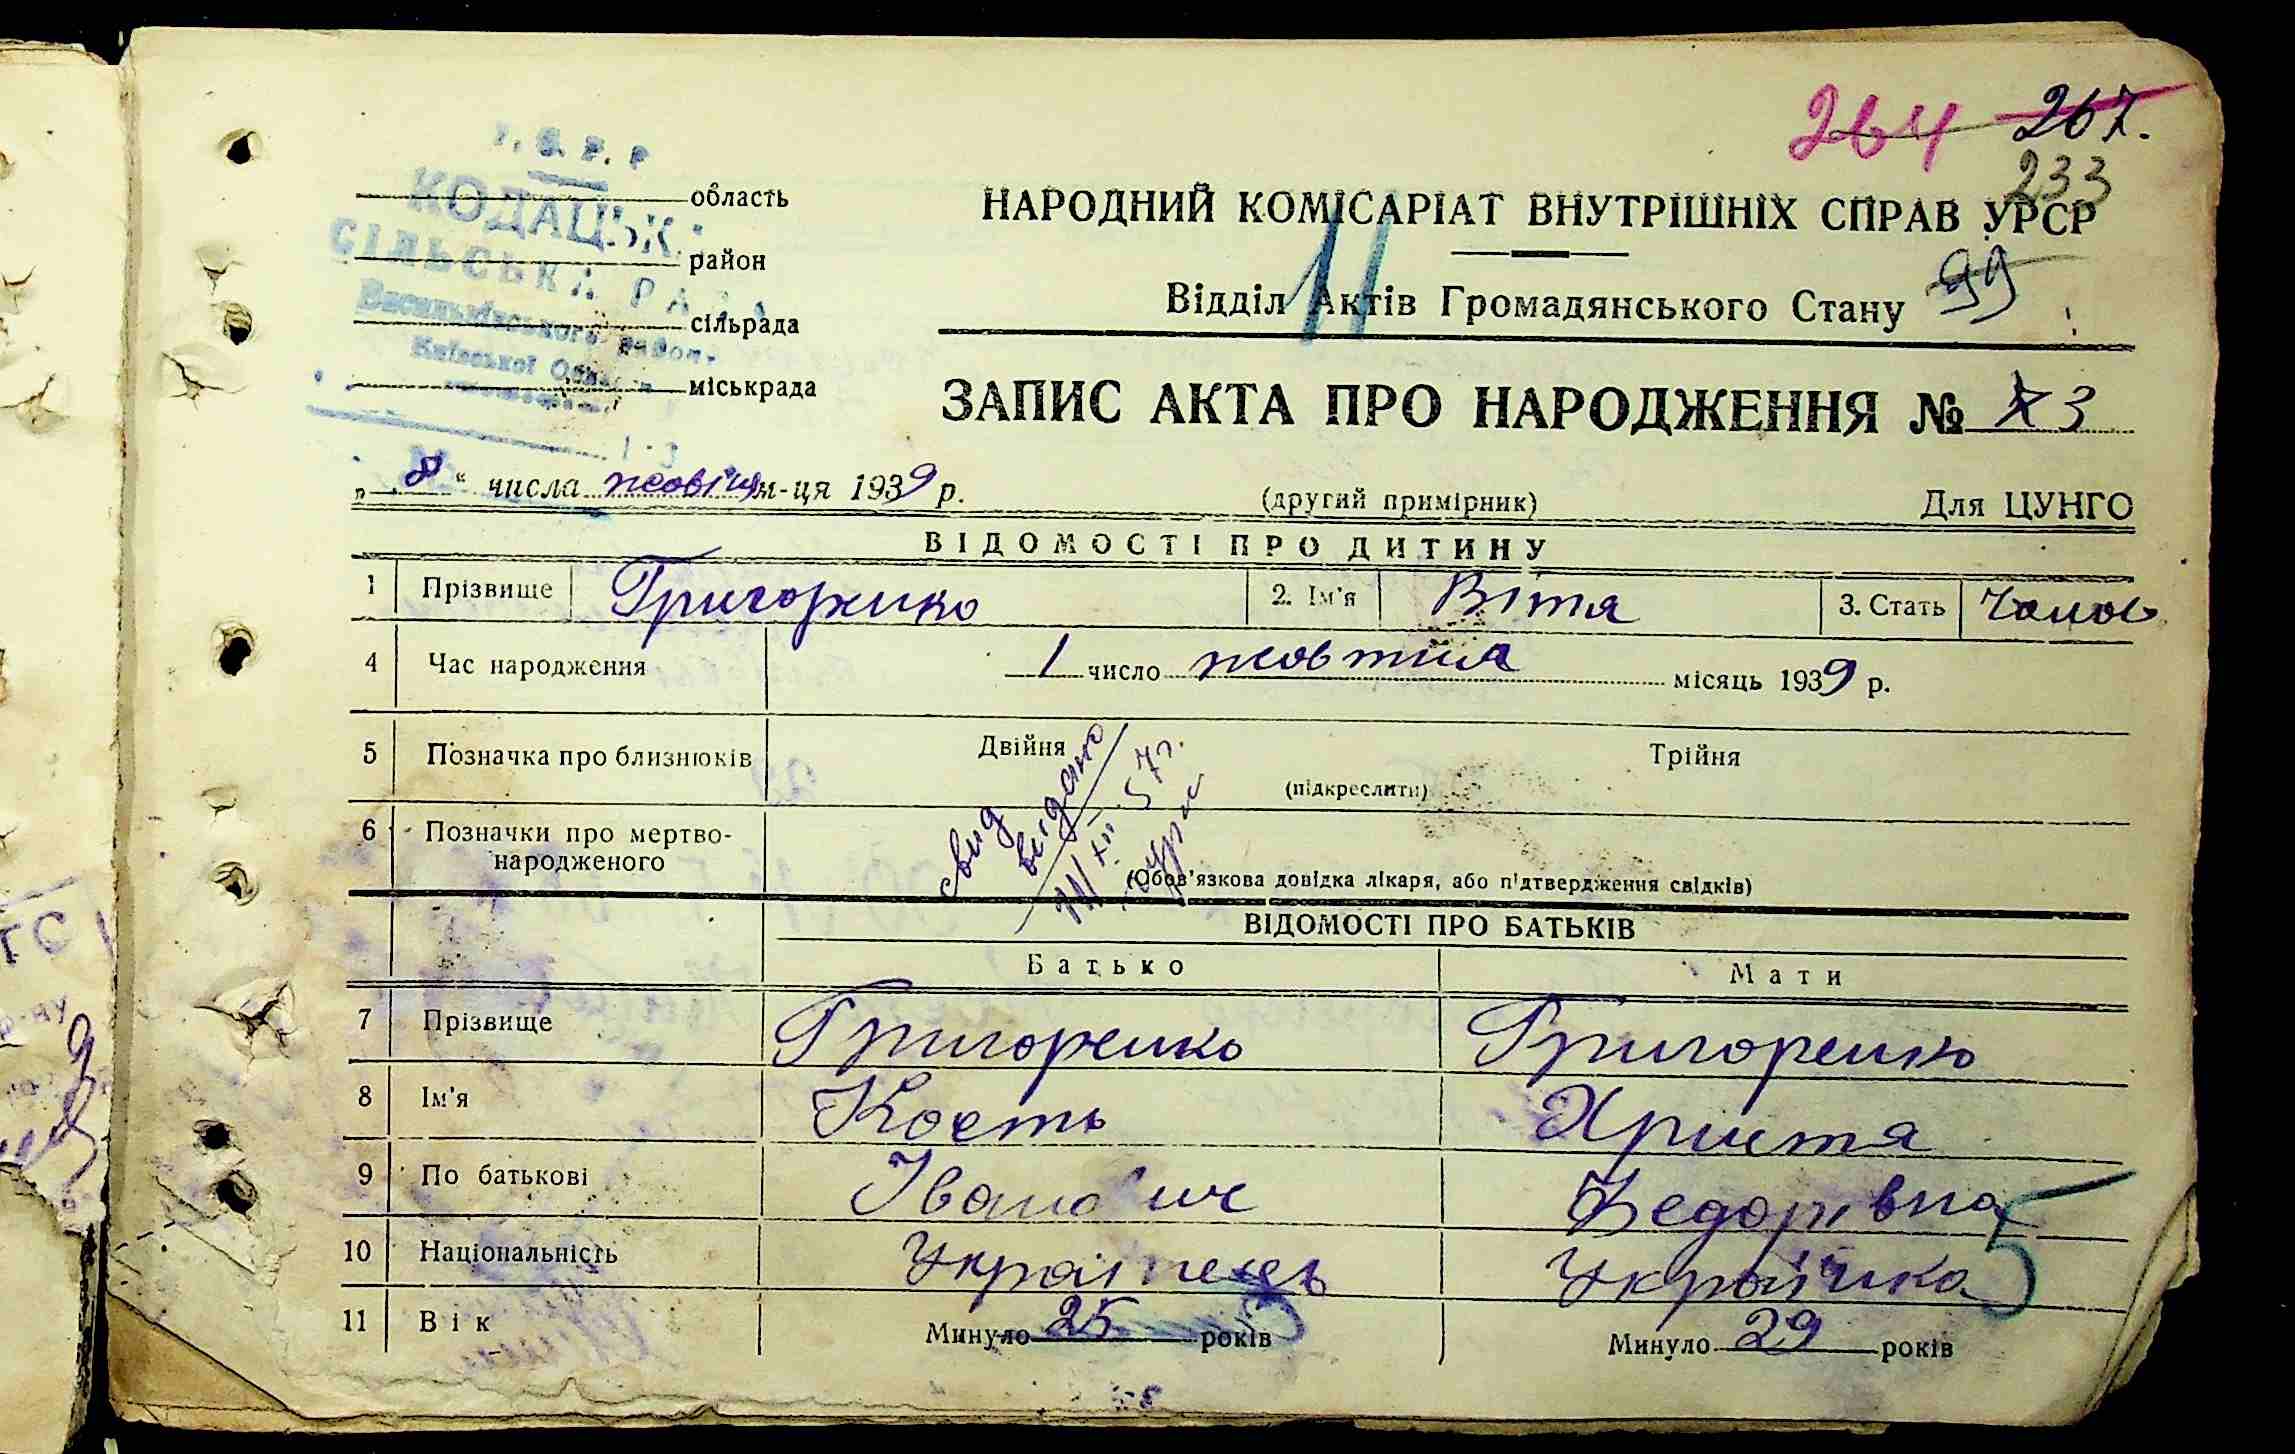 264 267.
233
У. С. Р. Р
КОДАЦЬК
СІЛЬСЬКА РАДА
Васильківського району
Київської Області
область
район
сільрада
міськрада
НАРОДНИЙ КОМІСАРІАТ ВНУТРІШНІХ СПРАВ УРСР
11
Відділ Актів Громадянського Стану 99
ЗАПИС АКТА ПРО НАРОДЖЕННЯ № 73
„ 8 “ числа жовтня м-ця 1939 р.
(другий примірник)
Для ЦУНГО
ВІДОМОСТІ ПРО ДИТИНУ
1 Прізвище Григоренко 2. Ім'я Вітя 3. Стать Чолов
4 Час народження 1 число жовтня місяць 1939 р.
5 Позначка про близнюків Двійня Трійня
(підкреслити)
6 Позначки про мертво-
народженого
(Обов'язкова довідка лікаря, або підтвердження свідків)
свид
видано
XII 57г.
ВІДОМОСТІ ПРО БАТЬКІВ
Батько Мати
7 Прізвище Григоренко Григоренко
8 Ім'я Кость Христя
9 По батькові Іванович Федорівна
10 Національність Українець Українка
5
11 Вік Минуло 25 років Минуло 29 років